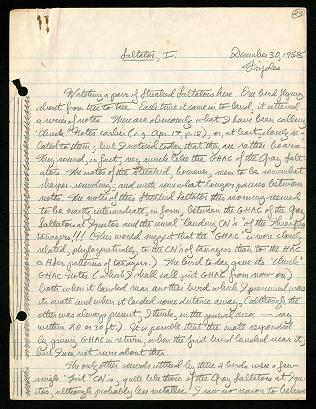 55
Saltator, I.
December 30, 1958
Frijoles
Watching a pair of Streaked Saltators here. One bird flying
about from tree to tree. Each time it came in to land, it uttered
a series of notes. These are obviously what I have been calling
"chuck" Notes earlier (e.g. Apr. 14, p. 12), or, at least, closely re-
lated to them; but I noticed today that they are rather hoarse.
They sound, in fact, very much like the GHAC of the Gray Salt-
ators. The notes of the Streaked, however, seem to be somewhat
sharper sounding; and with somewhat longer pauses between
notes. The notes of this Streaked Saltator this morning seemed
to be exactly intermediate, in form, between the GHAC of the Gray
Saltators at Iquitos and the usual "landing CN's" of the
tanagers!!! (This would suggest that the "GHAC" is more closely
related, phylogenetically, to the CN's of tanagers than to the HAC
patterns of tanagers.) The bird today gave its "chuck"
GHAC notes (which I shall call just GHAC from now on)
both when it landed near another bird which I presumed was
its mate and when it landed some distance away, (although the
other was always present, I think, in the general area — say
within 20 or 30 ft.) It is possible that the mate responded
by giving GHAC in return, when the first bird landed near it,
but I am not sure about this.
The only other sounds uttered by these 2 birds was a few
single "tsit" CN's, quite like those of the Gray Saltators at Iqui-
tos, although probably less metallic. I saw no reason to believe